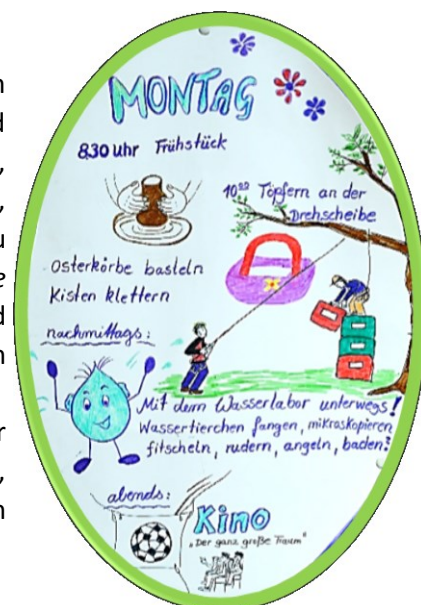 MONTAG
8.30 Uhr Frühstück
Töpfern an der
Drehscheibe
Osterkörbe basteln
Kisten klettern
nachmittags:
Mit dem Wasserlabor unterwegs!
Wassertierchen fangen, mikraskopieren
fitscheln, rudern, angeln, baden?
abends:
Kino
"Der ganz große Traum"